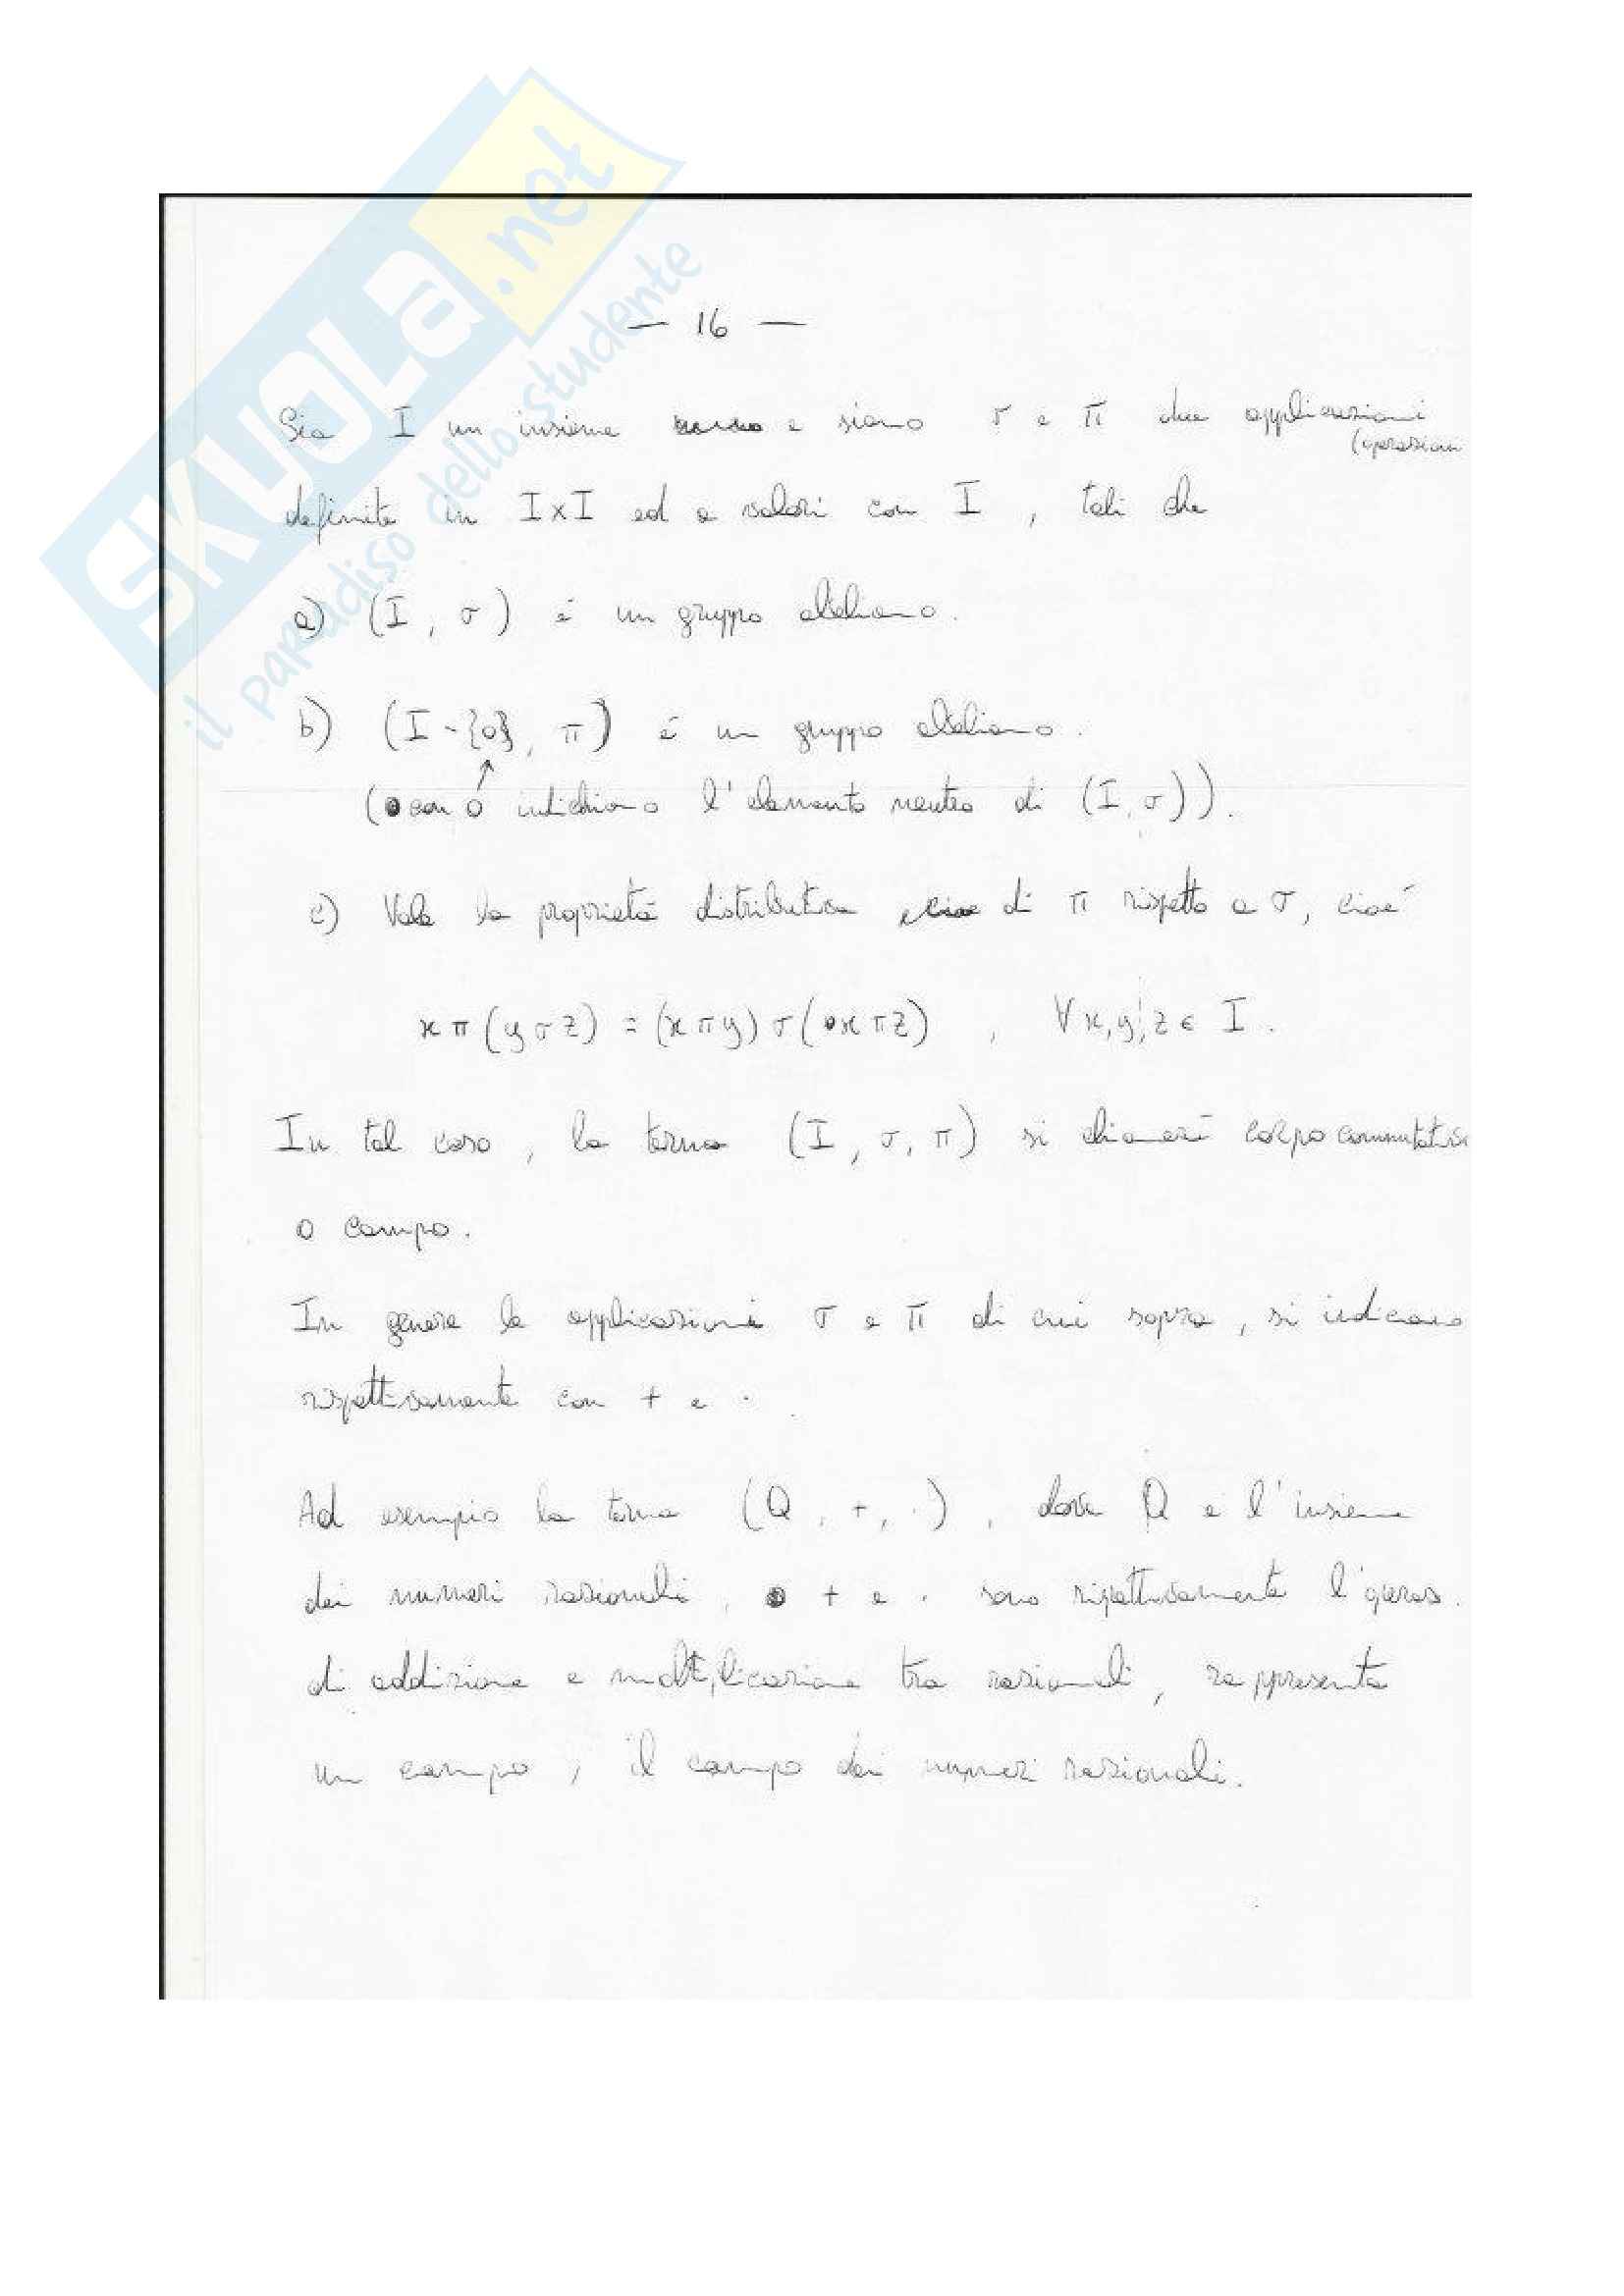 SKUOLA.net
il paradiso dello studente
— 16 —
Sia I un insieme e siano σ e π due applicazioni
(operazion
definite in I×I ed a valori con I , tali che
a) (I, σ) è un gruppo abeliano.
b) (I-{0}, π) è un gruppo abeliano.
(con 0 indichiamo l'elemento neutro di (I, σ)).
c) Vale la proprietà distributiva di π rispetto a σ, cioè
x π (y σ z) = (x π y) σ (x π z) , ∀ x, y, z ∈ I.
In tal caso, la terna (I, σ, π) si chiamerà corpo commutativ
o campo.
In genere le applicazioni σ e π di cui sopra, si indicano
rispettivamente con + e ·
Ad esempio la terna (Q, +, ·), dove Q è l'insieme
dei numeri razionali, + e · sono rispettivamente l'operaz.
di addizione e moltiplicazione tra razionali, rappresenta
un campo, il campo dei numeri razionali.